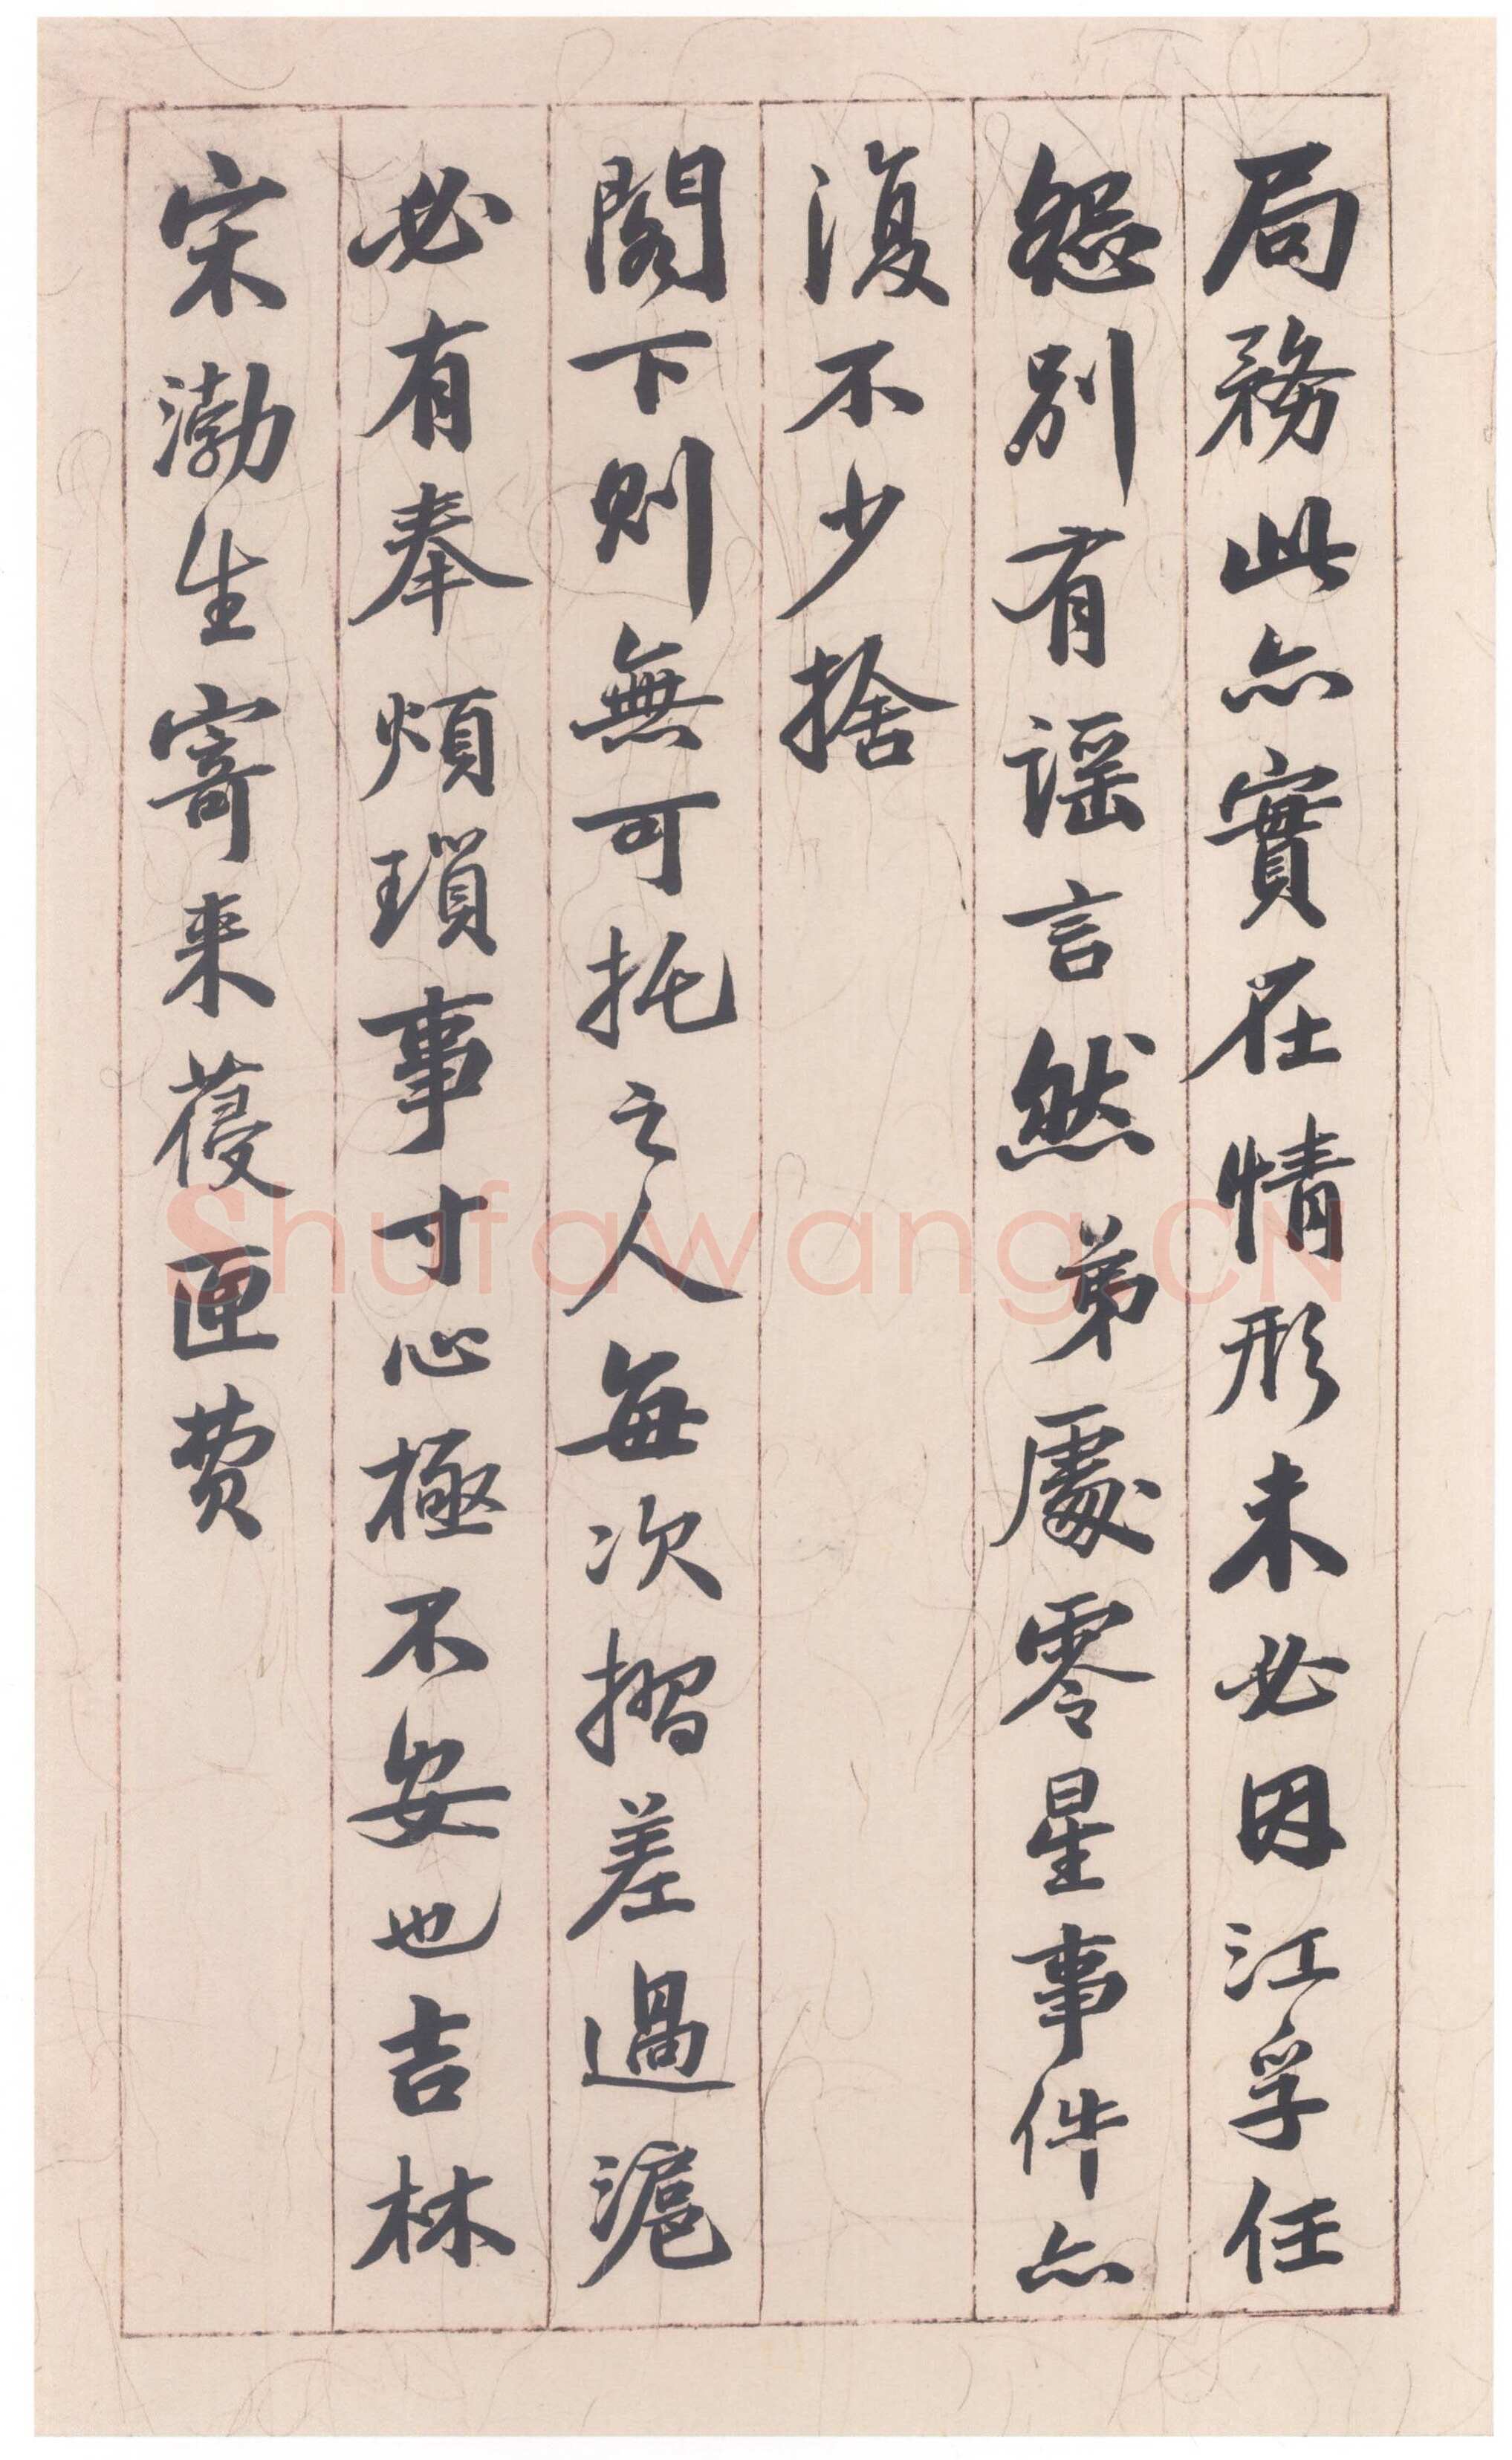 局務此亦實在情形未必因江孚任
怨別有谣言然弟處零星事件亦
復不少捨
閣下則無可托之人每次摺差過滬
必有奉煩瑣事寸心極不安也吉林
宋渤生寄来葠匣费
Shufawang.CN